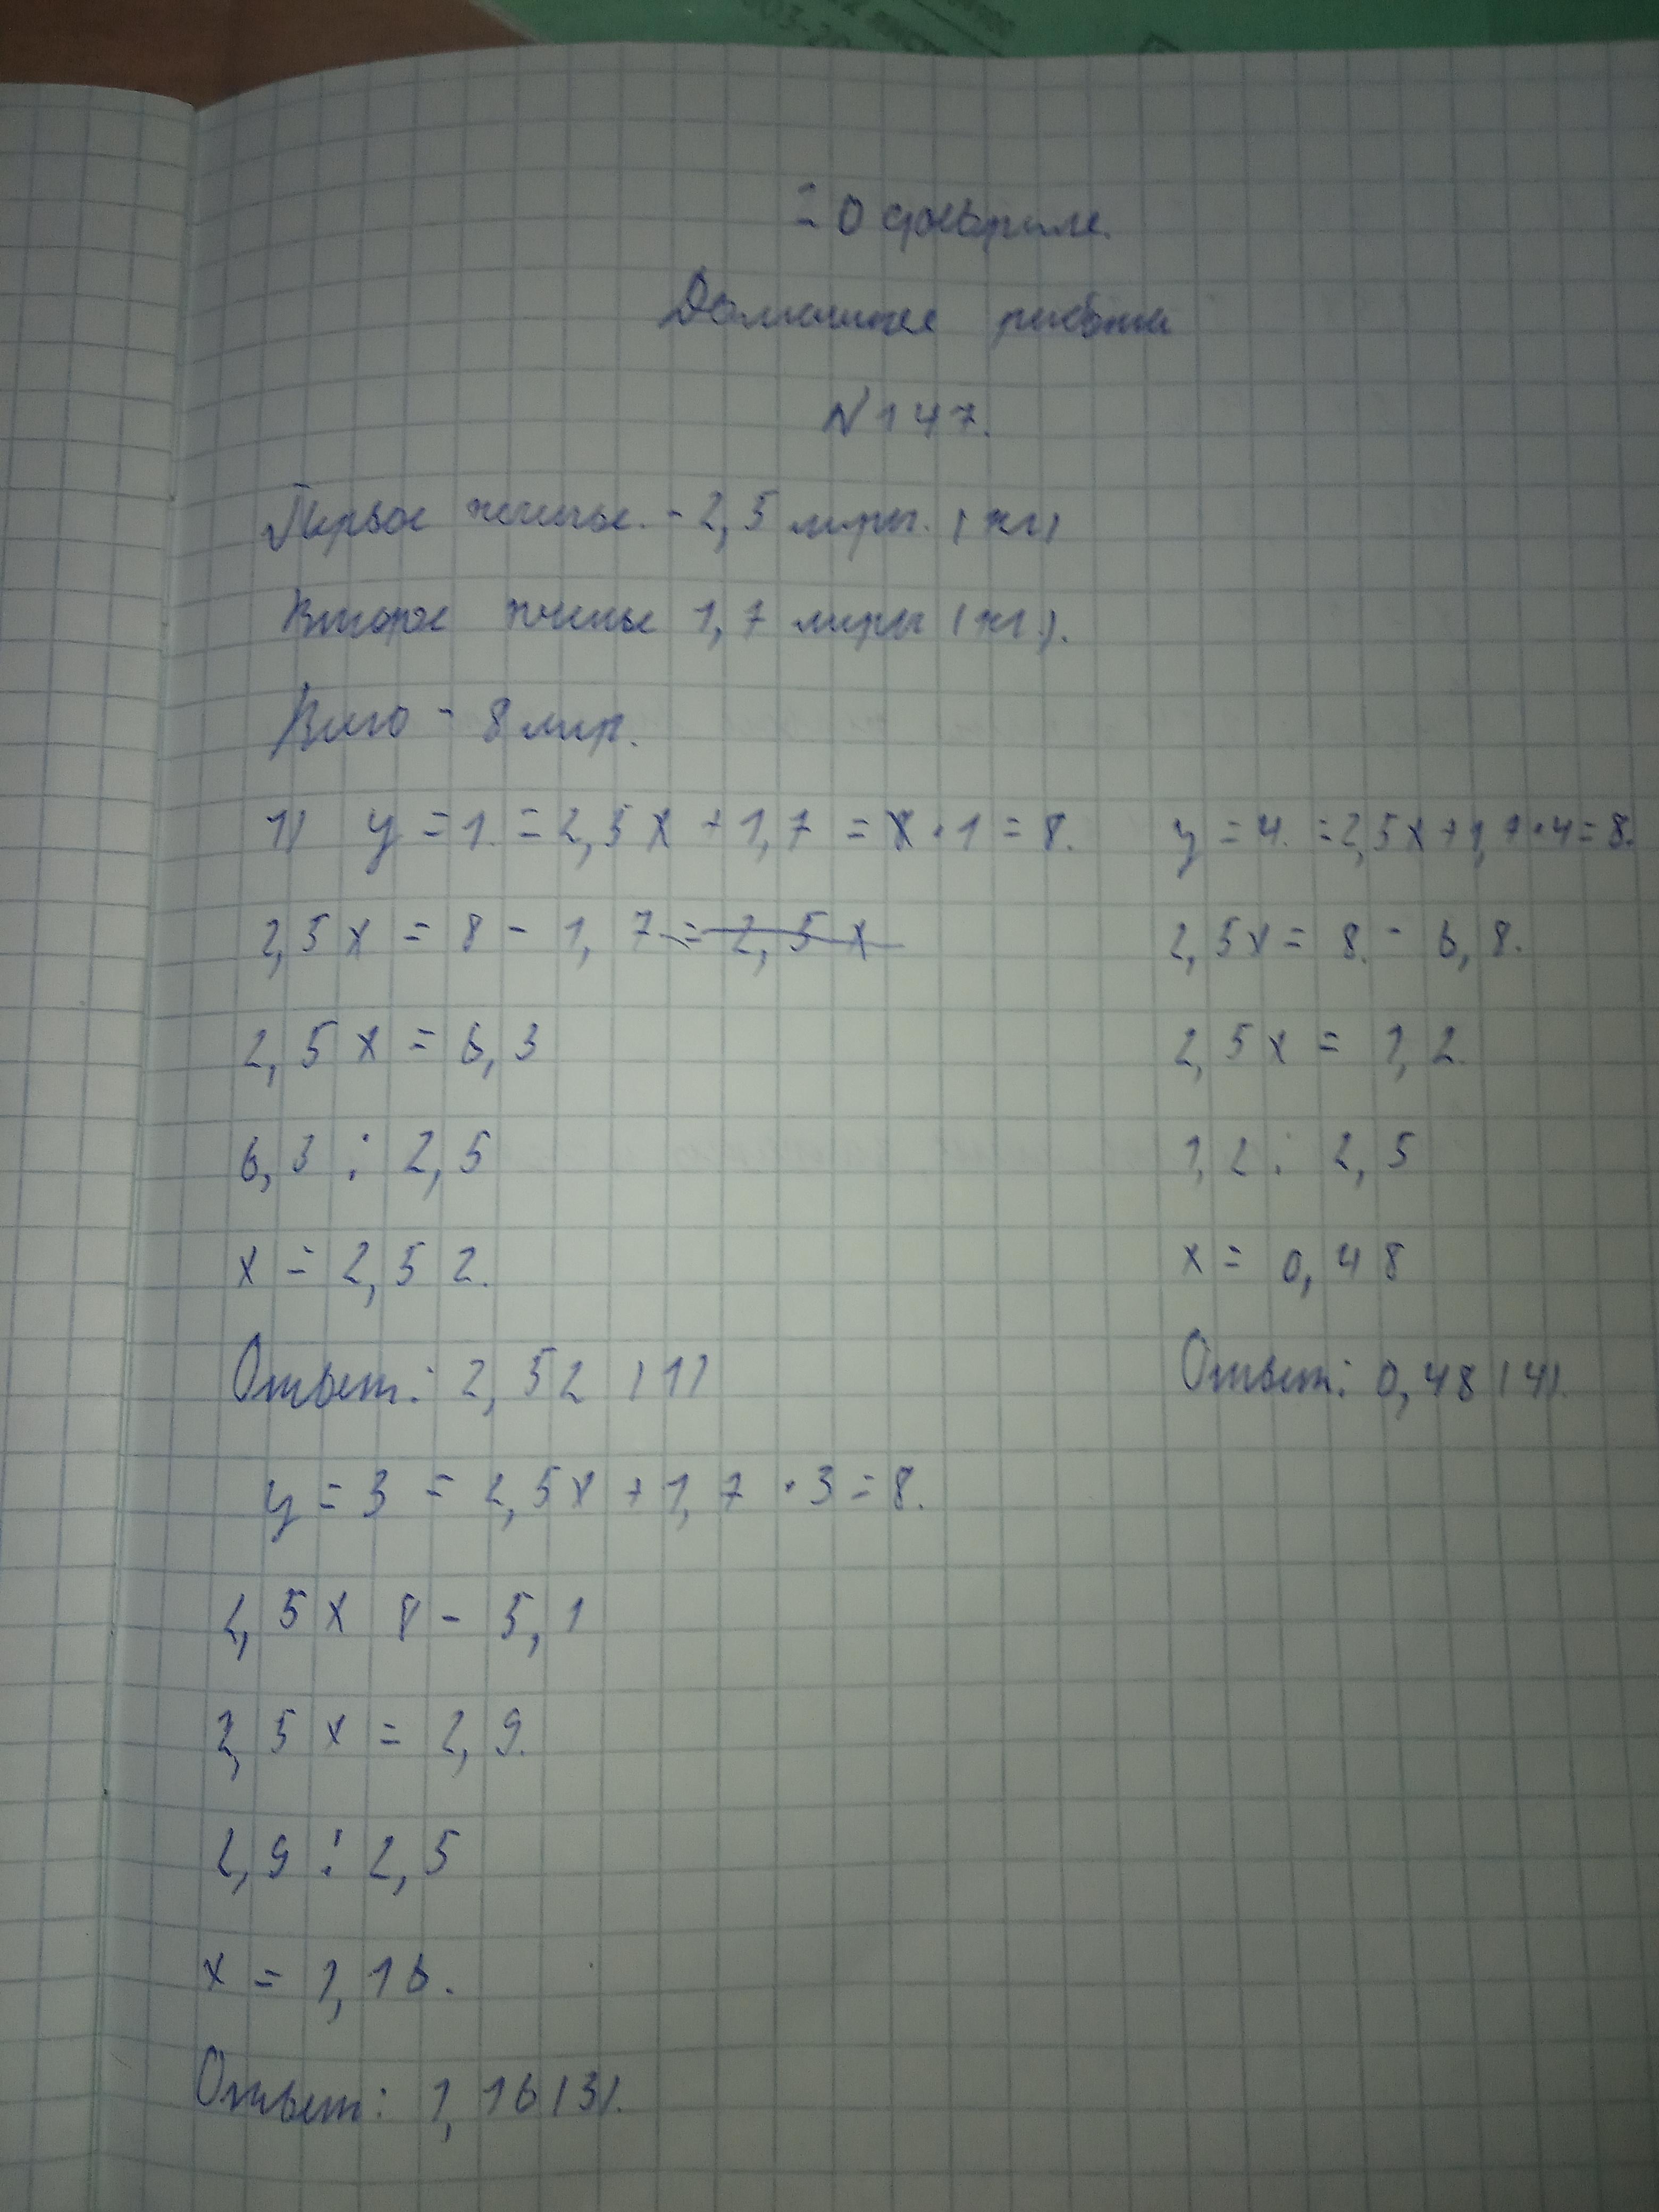 20 февраля.
Домашняя работа
N 147.
Первое печенье. - 2,5 лиры. (кг)
Второе печенье 1,7 лиры (кг).
Всего - 8 лир.
1) y = 1. = 2,5x + 1,7 = 8 · 1 = 8.
2,5x = 8 - 1,7 = 2,5x
2,5x = 6,3
6,3 : 2,5
x = 2,52.
Ответ: 2,52 (1)
y = 4. = 2,5x + 1,7 · 4 = 8.
2,5x = 8. - 6,8.
2,5x = 1,2.
1,2 : 2,5
x = 0,48
Ответ: 0,48 (4).
y = 3 = 2,5x + 1,7 · 3 = 8.
2,5x 8 - 5,1
2,5x = 2,9.
2,9 : 2,5
x = 1,16.
Ответ: 1,16 (3).